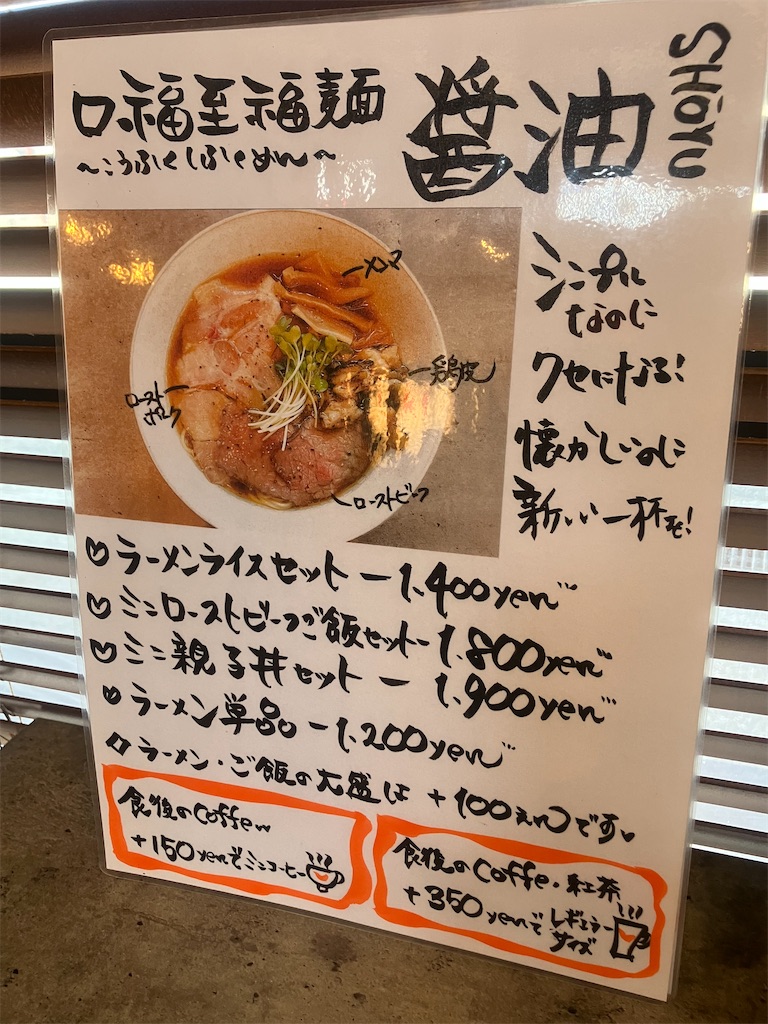 口福至福麺
～こうふくしふくめん～
醤油
SHOYU
メンマ
鶏皮
ローストポーク
ローストビーフ
シンプル
なのに
クセになる!
懐かしいのに
新しい一杯を!
ラーメンライスセット ー 1.400yen
ミニローストビーフご飯セット ー 1.800yen
ミニ親子丼セット ー 1.900yen
ラーメン単品 ー 1.200yen
ラーメン・ご飯の大盛は +100えんです
食後のCoffee
+150yenでミニコーヒー
食後のCoffe・紅茶
+350yenで レギュラーサイズ